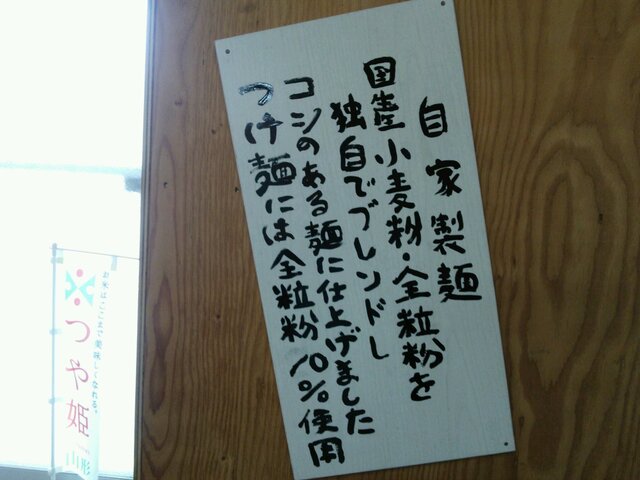 自家製麺
国産小麦粉・全粒粉を
独自でブレンドし
コシのある麺に仕上げました
つけ麺には全粒粉10%使用
お米はここまで美味しくなれる。
つや姫
山形